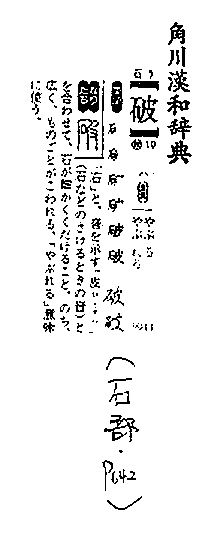 角川漢和辞典
石 5
【破】
10
やぶる
やぶれる
石 破 破 破
なりたち
「石」と、音を示す「皮」
(石などのさけるときの音)と
を合わせて、石が細かくくだけること。のち、
広く、ものごとがこわれる、「やぶれる」意味
に使う。
(石部・P642)